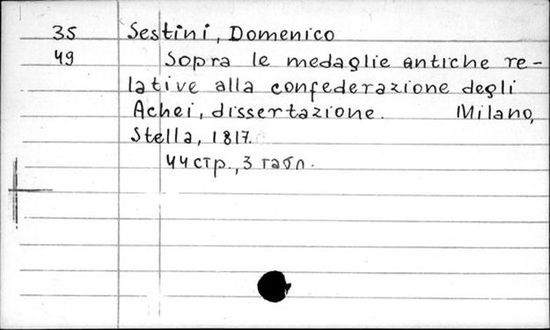 35 Sestini, Domenico
49 Sopra le medaglie antiche re-
lative alla confederazione degli
Achei, dissertazione. Milano,
Stella, 1817.
44 стр., 3 табл.